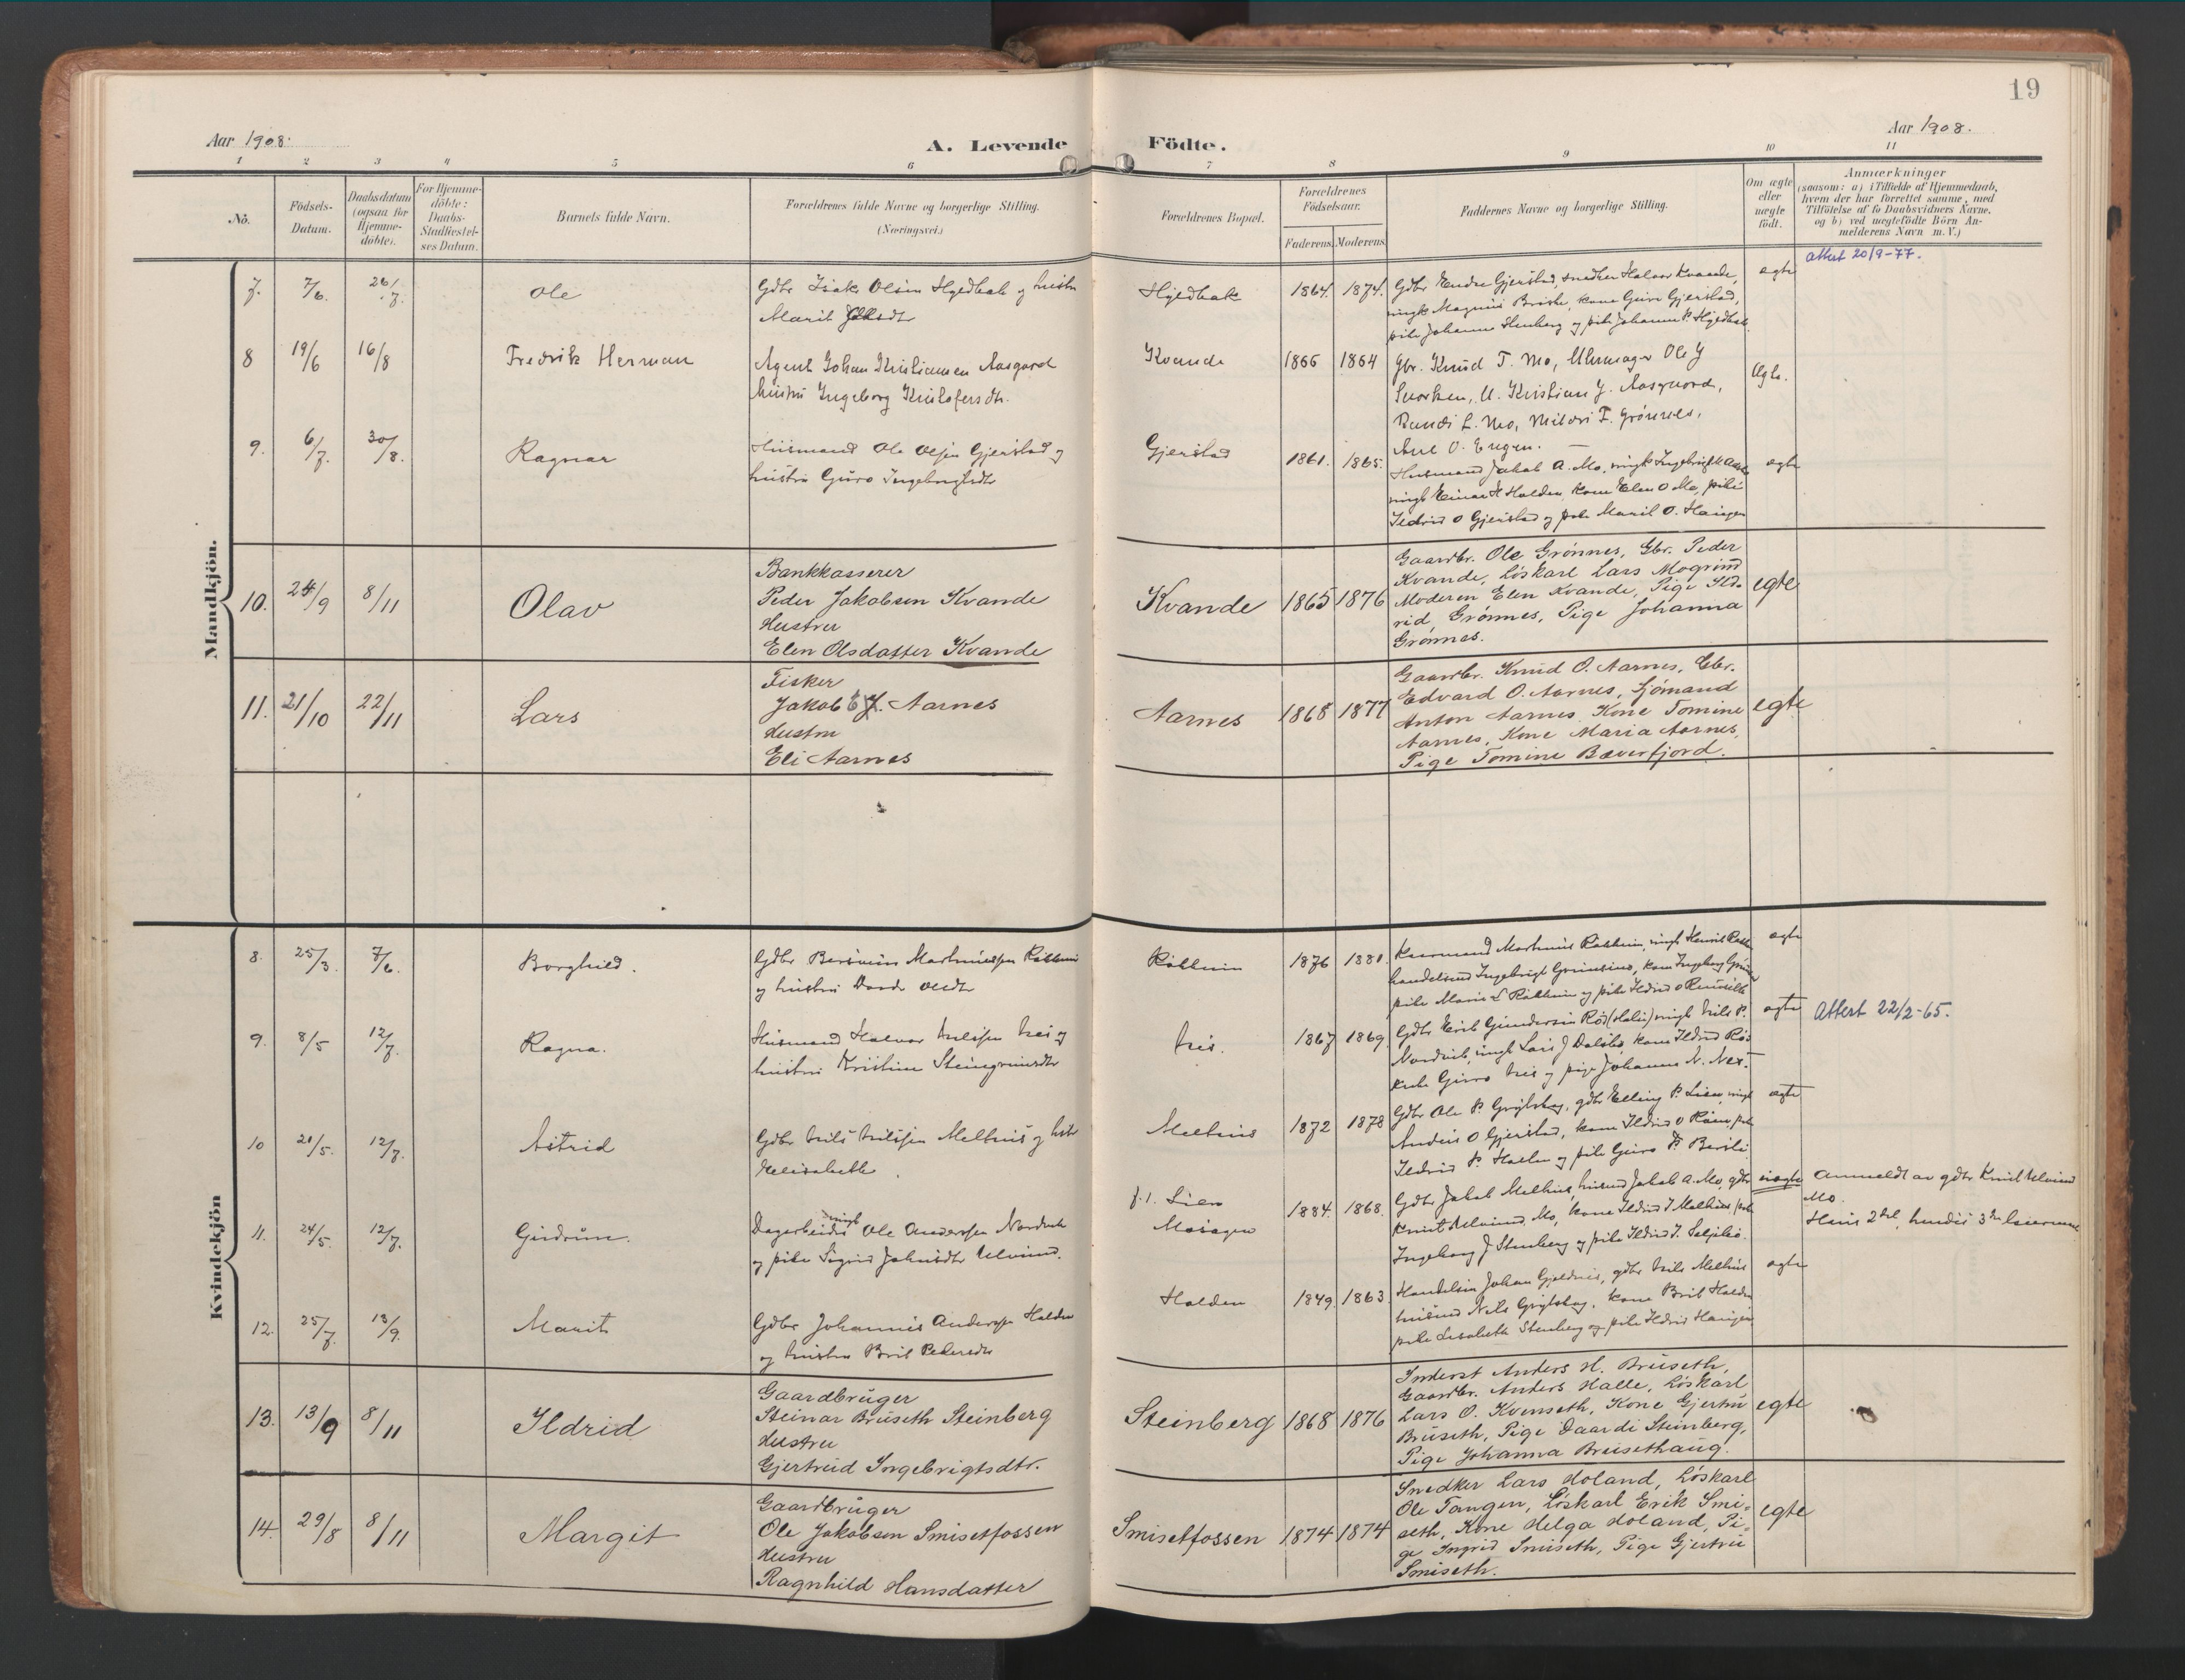 19
Aar 1908.
A. Levende
Födte.
Aar 1908.
1 2 3 4 5 6 7 8 9 10 11
No.
Födsels-
Datum.
Daabsdatum
(ogsaa for
Hjemme-
döbte).
For Hjemme-
döbte:
Daabs-
Stadfæstel-
ses Datum.
Barnets fulde Navn.
Forældrenes fulde Navne og borgerlige Stilling.
(Næringsvei.)
Forældrenes Bopæl.
Forældrenes
Födselsaar.
Faderens. Moderens.
Faddernes Navne og borgerlige Stilling.
Om ægte
eller
uægte
födt.
Anmærkninger
(saasom: a) i Tilfælde af Hjemmedaab,
hvem der har forrettet samme, med
Tilföielse af to Daabsvidners Navne,
og b) ved uægtefödte Börn An-
melderens Navn m. V.)
Mandkjön.
7. 7/6. 26/7. Ole
Gdbr Isak Olsen Hyldbak og hustru
Marit
Hyldbak 1864. 1874.
Gdbr Endre Gjerstad, snedker Halvor Kvande,
ungk Magnus Brøske, kone Guro Gjerstad,
pike Johanna Stenberg og pike Johanna P. Hyldbak
ægte
Attest 20/9-77.
8 19/6 16/8 Fredrik Herman
Agent Johan Kristiansen Aasgard
hustru Ingeborg Kristofersdtr.
Kvande 1866 1864
Gbr. Knud T. Mo, Uhrmager Ole J
Snorken, U. Kristian J. Aasgaard,
Randi L. Mo, Mildri F. Grönnes,
Ane O. Engen.
Ægte.
9. 6/7. 30/8. Ragnar
Husmand Ole Olsen Gjerstad og
hustru Guro Ingebrigtsdtr
Gjerstad 1861. 1865.
Husmand Jakob A. Mo, ungk Ingebrigt
ungk Einar H Halden, kone Elen O Mo, pike
Ildrid O Gjerstad og pike Marit O. Haugen
ægte
10. 24/9 8/11 Olav
Bankkasserer
Peder Jakobsen Kvande
Hustru
Elen Olsdatter Kvande
Kvande 1865 1876
Gaardbr. Ole Grönnes, Gbr. Peder
Kvande, Löskarl Lars Mogrind
Moderen Elen Kvande, Pige Ild-
rid Grönnes, Pige Johanna
Grönnes.
egte
11. 21/10 22/11 Lars
Fisker
Jakob J. Aarnes
Hustru
Eli Aarnes
Aarnes 1868 1877
Gaardbr. Knud O. Aarnes, Gbr.
Edvard O. Aarnes, Sjömand
Anton Aarnes, Kone Tomine
Aarnes, Kone Maria Aarnes,
Pige Tomine Bæverfjord.
egte
Kvindekjön
8. 25/3. 7/6. Borghild.
Gdbr Bersvein Martinussen Røkkum
og hustru Dordi Olsdtr
Røkkum 1876 1881.
Kaarmand Martinus Røkkum, ungk Henrik
handelsmd Ingebrigt Grimsmo, kone Ingeborg
pike Marie L Røkkum og pike Ildrid O
ægte
9. 8/5 12/7. Ragna.
Husmand Halvor Nilssen Nes og
hustru Kristine Steingrimsdtr
Nes. 1867 1869.
Gdbr Erik Gundersen Rös (Halse) ungk Nils P.
Nordvik, ungk Lars J Dalsbø kone Ildrid Rös
Guro Nes og pige Johanna N. Nes.
ægte
Attest 22/2-65.
10 21/5. 12/7. Astrid
Gdbr Nils Nilssen Melhus og hstr
Melhus 1872 1878
Gdbr Ole P. Grytskog, gdbr Elling P. Lien, ungk
Anders O Gjerstad, kone Ildrid O
Ildrid P. og pike Guro
ægte
11. 24/5. 12/7. Gudrun.
Dagarbeider ungk Ole Anderssen Nordvik
og pike Sigrid Johnsdtr Ulvund.
f. 1. Lien
Mosagen
1884. 1868.
Gdbr Jakob Melhus, husmd Jakob A. Mo, gdbr
Knut Ulvund Mo, kone Ildrid J Melhus, pike
Ingeborg J Stenberg og pike Ildrid J.
uægte
Anmeldt av gdbr Knut Ulvund
Mo.
Hans 2det, hendes 3die leiermaal
12. 25/7. 13/9. Marit
Gdbr Johannes Anderssen Halden
og hustru Brit Pedersdtr
Halden 1849. 1863.
Johan Gjeldnes, gdbr Nils Melhus
husmd Nils Grytskog, kone Brit Halden
pike Lisabeth Stenberg og pike Ildrid Haugen
ægte
13. 13/9 8/11 Ildrid
Gaardbruger
Steinar Bruseth Steinberg
Hustru
Gjertrud Ingebrigtsdtr.
Steinberg 1868 1876
Inderst Anders H. Bruseth,
Gaardbr. Anders Halle, Löskarl
Lars O. Kvenseth, Kone Gjertru
Bruseth, Pige Daardi Steinberg,
Pige Johanna Brusethaug.
egte
14. 29/8 8/11 Margit
Gaardbruger
Ole Jakobsen Smisetfossen
Hustru
Ragnhild Hansdatter
Smisetfossen 1874 1874
Snedker Lars Holand, Löskarl
Ole Tangen, Löskarl Erik Smi-
seth, Kone Helga Holand, Pi-
ge Ingrid Smiseth, Pige Gjertru
Smiseth.
egte